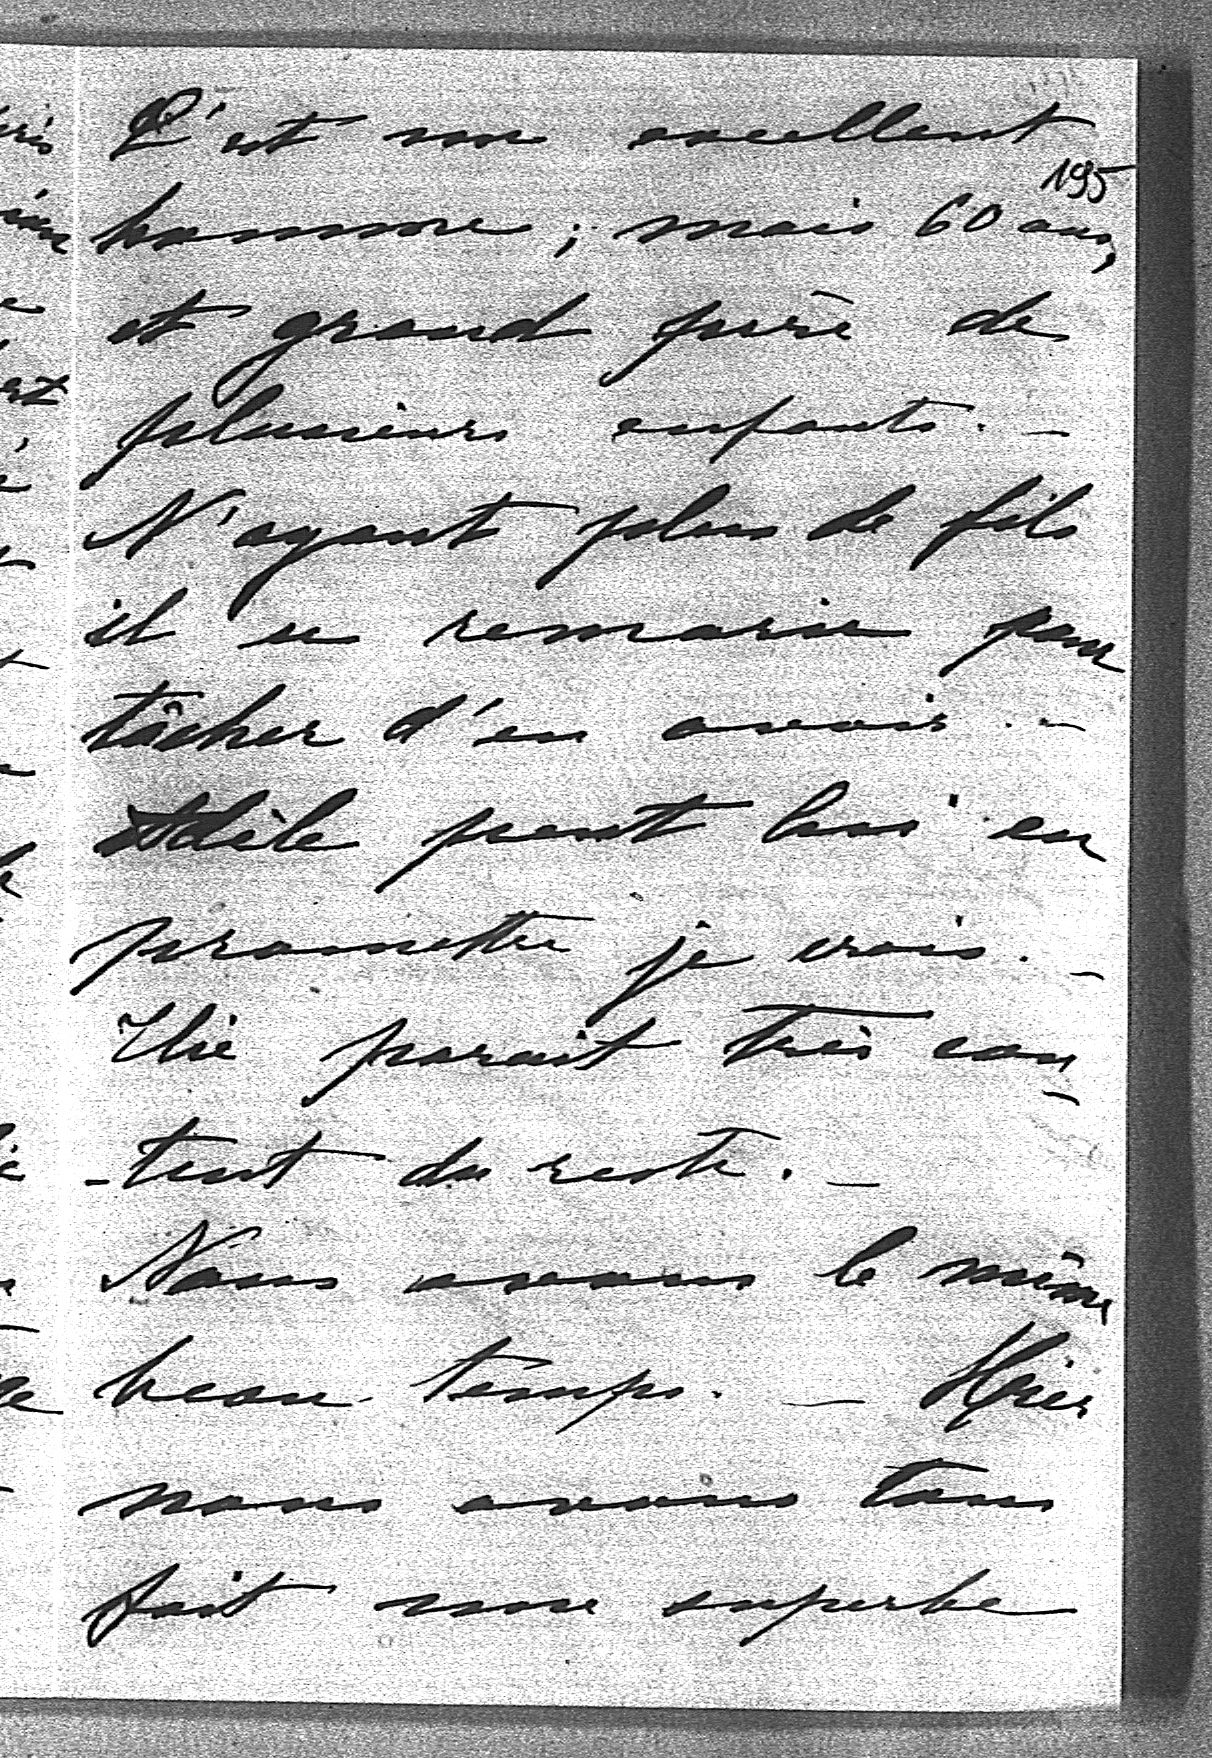 C'est un excellent
195
homme ; mais 60 ans,
et grand père de
plusieurs enfants. —
N'ayant plus de fils
il se remarie pour
tâcher d'en avoir. —
Adèle peut lui en
promettre je crois. —
parait très con-
-tent du reste. —
Nous avons le même
beau temps. — Hier
nous avons tous
fait une superbe